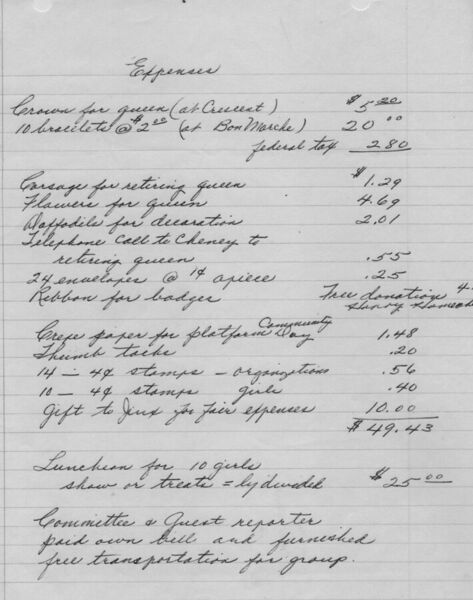 Expenses
Crown for queen (at Crescent) $5.20
10 bracelets @ $2.00 (at Bon Marche) 20.00
federal tax 2.80
Corsage for retiring queen $1.29
Flowers for queen 4.69
Daffodils for decoration 2.01
Telephone call to Cheney to
retiring queen .55
24 envelopes @ 1¢ apiece .25
Ribbon for badges Free donation
Crepe paper for platform Community Day 1.48
Thumb tacks .20
14 - 4¢ stamps - organizations .56
10 - 4¢ stamps girls .40
Gift to Jinx for Fair expenses 10.00
$49.43
Luncheon for 10 girls
show or treats = divided $25.00
Committee & Guest reporter
paid own bill and furnished
free transportation for group.